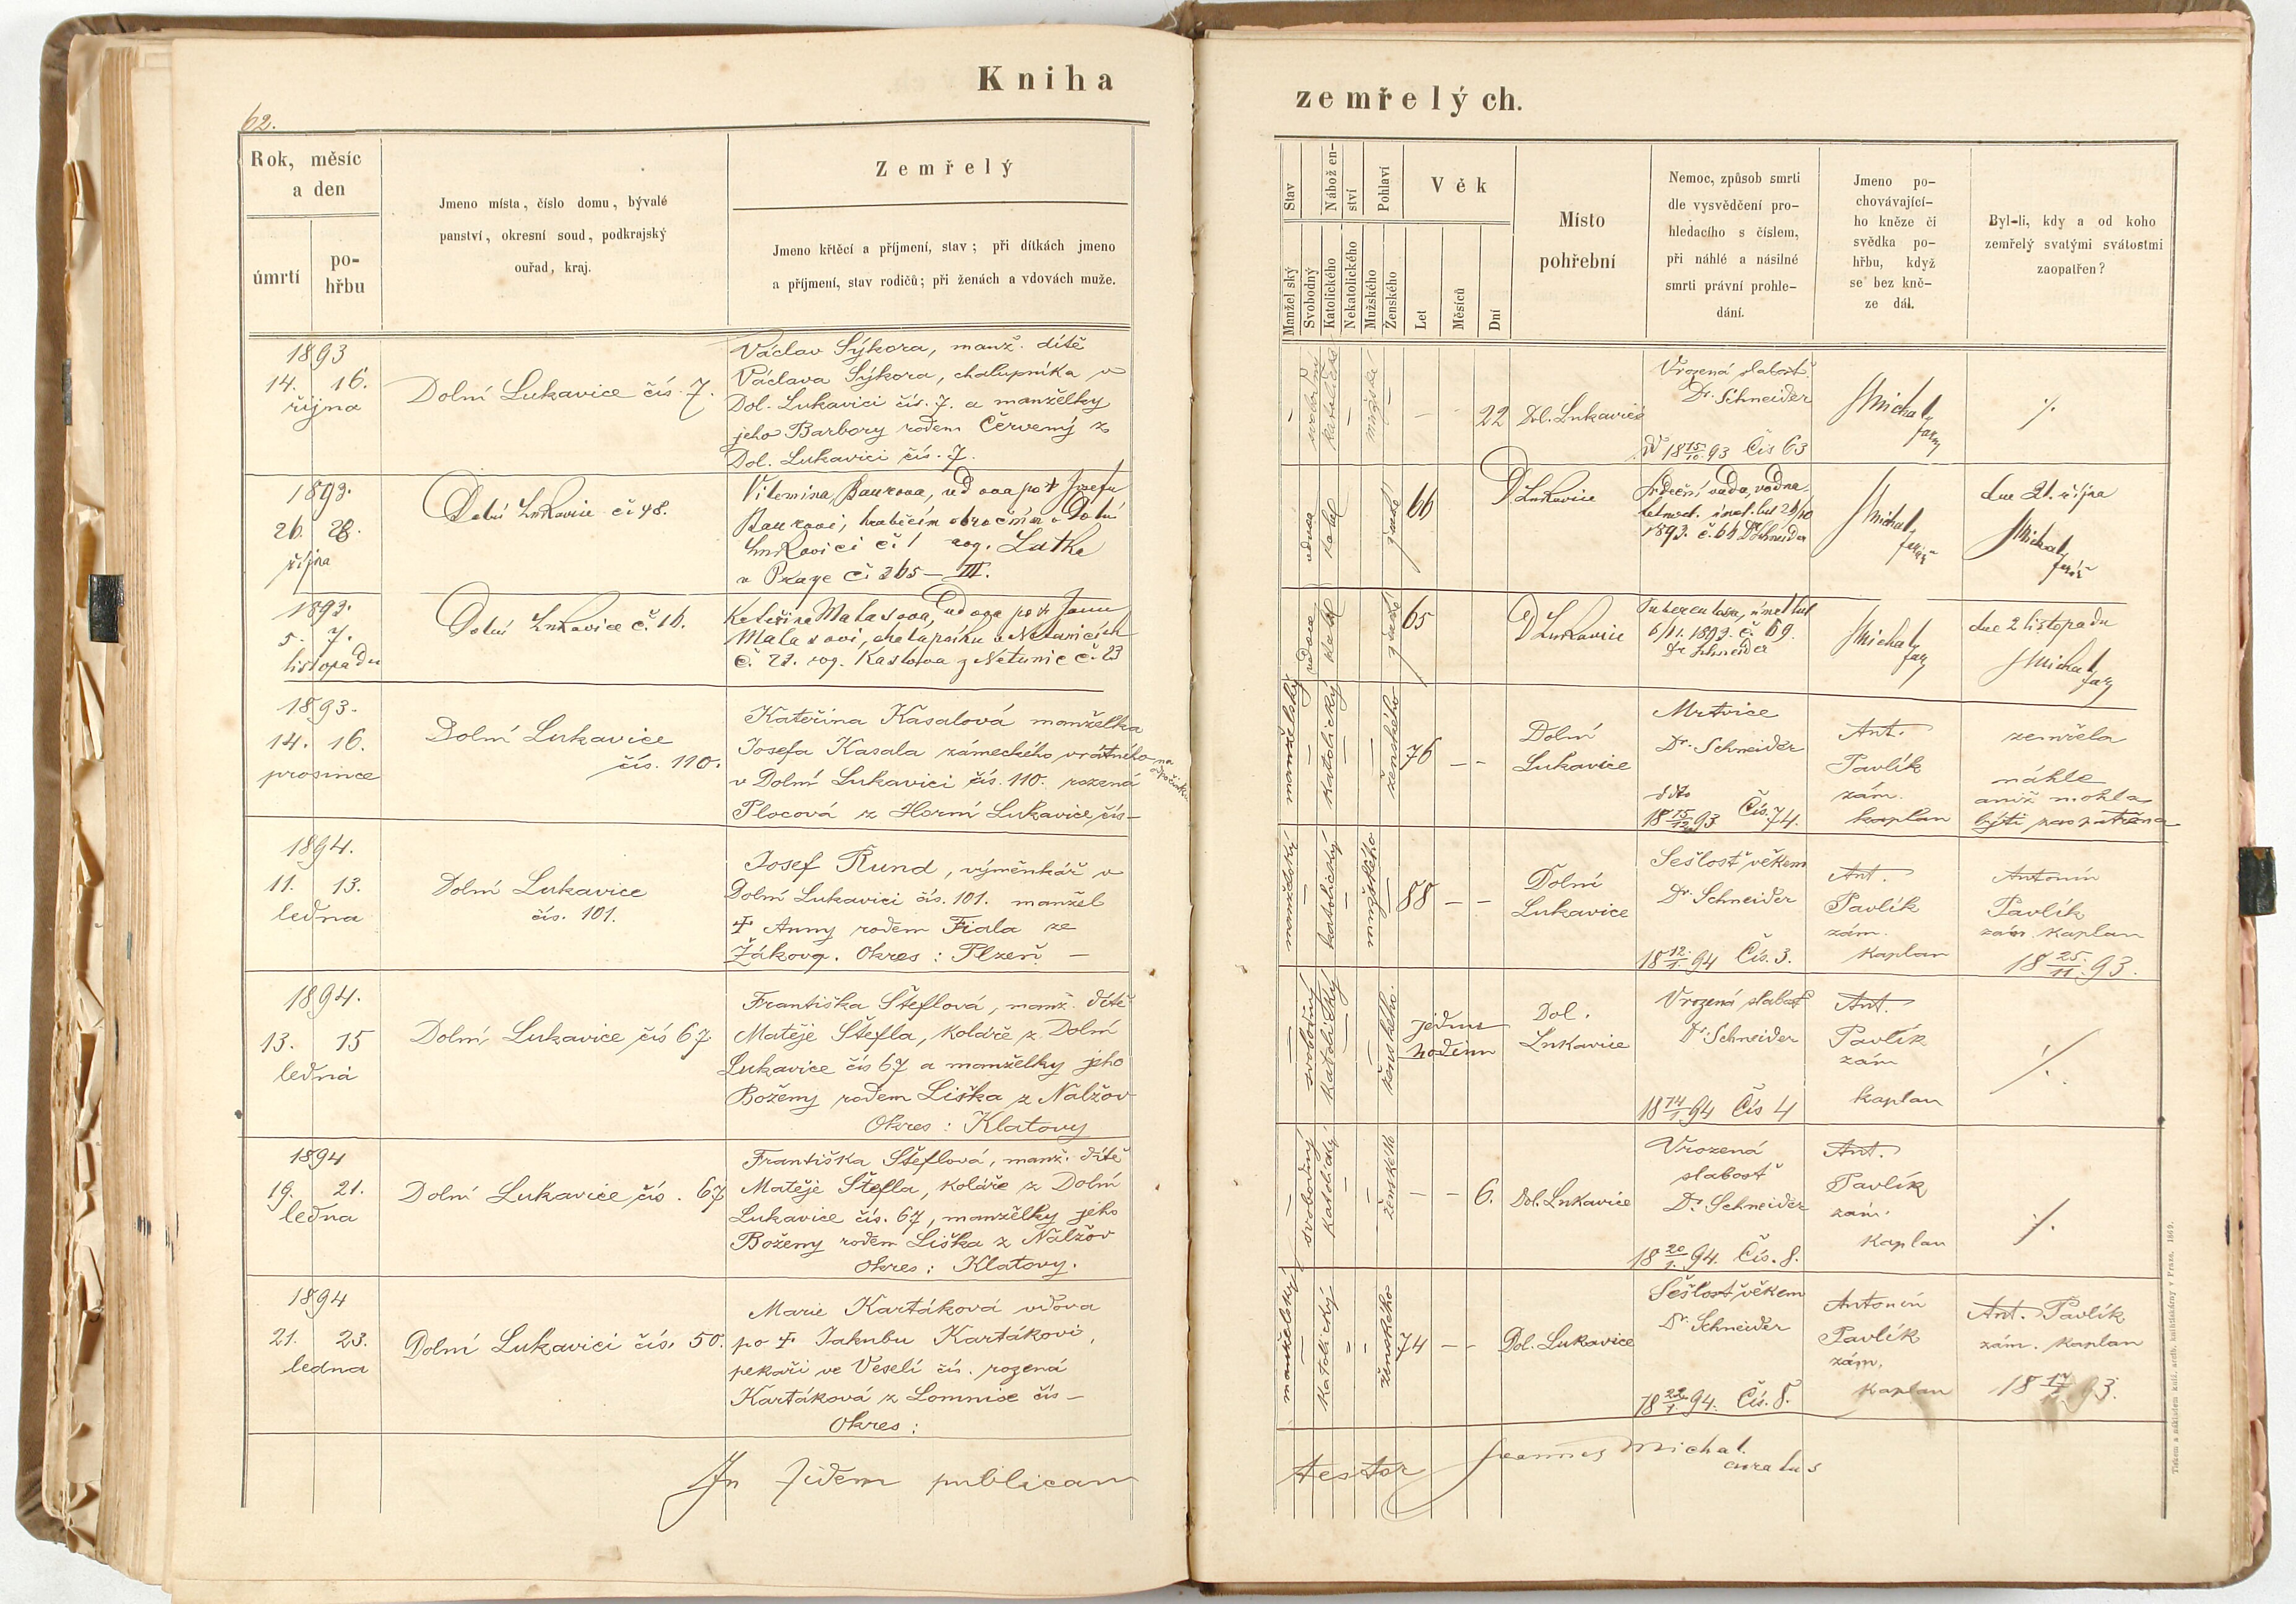 Kniha
62.
Rok, měsíc
a den
úmrtí
po-
hřbu
Jmeno místa, číslo domu, bývalé
panství, okresní soud, podkrajský
ouřad, kraj.
Zemřelý
Jmeno křtěcí a příjmení, stav; při dítkách jmeno
a příjmení, stav rodičů; při ženách a vdovách muže.
1893
14. 16.
října
Dolní Lukavice čís. 7.
Václav Sýkora, manž. dítě
Václava Sýkora, chalupníka v
Dol. Lukavici čís. 7. a manželky
jeho Barbory rodem Červený z
Dol. Lukavici čís. 7.
1893.
26. 28.
října
Dolní Lukavice č 48.
Vilemina Baurova, vdova po † Josefu
Baurovi, hraběcím obročním v Dolní
Lukavici č. 1 roz. Latka
v Praze č 365 — III.
1893.
5. 7.
listopadu
Dolní Lukavice č. 16.
Kateřina Malasova, vdova po † Janu
Malasovi, chalupníku v Netunicích
č. 23. roz. Kaslova z Netunic č. 23
1893.
14. 16.
prosince
Dolní Lukavice
čís. 110.
Kateřina Kasalová manželka
Josefa Kasala zámeckého vrátného na
odpočinku
v Dolní Lukavici čís. 110. rozená
Plocová z Horní Lukavice čís —
1894.
11. 13.
ledna
Dolní Lukavice
čís. 101.
Josef Rund, výměnkář v
Dolní Lukavici čís. 101. manžel
† Anny rodem Fiala ze
Žákova. Okres: Plzeň —
1894.
13. 15
ledna
Dolní Lukavice čís 67.
Františka Šteflová, manž. dítě
Matěje Štefla, koláře z Dolní
Lukavice čís 67 a manželky jeho
Boženy rodem Liška z Nalžov
Okres: Klatovy
1894
19. 21.
ledna
Dolní Lukavice čís. 67
Františka Šteflová, manž. dítě
Matěje Štefla, koláře z Dolní
Lukavice čís. 67, manželky jeho
Boženy rodem Liška z Nalžov
Okres: Klatovy.
1894
21. 23.
ledna
Dolní Lukavici čís. 50.
Marie Kartáková vdova
po † Jakubu Kartákovi,
pekaři ve Veselí čís. rozená
Kartáková z Lomnice čís —
Okres:
In fidem publicam
zemřelých.
Stav
Manželský
Svobodný
Nábožen-
ství
Katolického
Nekatolického
Pohlaví
Mužského
Ženského
Věk
Let
Měsíců
Dní
Místo
pohřební
Nemoc, způsob smrti
dle vysvědčení pro-
hledacího s číslem,
při náhlé a násilné
smrti právní prohle-
dání.
Jmeno po-
chovávající-
ho kněze či
svědka po-
hřbu, když
se bez kně-
ze dál.
Byl-li, kdy a od koho
zemřelý svatými svátostmi
zaopatřen?
svobodný
katolický
mužské
22
Dol. Lukavice
Vrozená slabosť.
Dr. Schneider
18 15/10 93 Čís 63
Michal
farář
vdova
katol
ženské
66
D Lukavice
Srdeční vada, vodna-
telnost.
1893. č. 66 Dr Schneider
Michal
farář
dne 21. října
Michal
farář
vdova
katol
ženské
65
D Lukavice
Tuberculosa,
6/11. 1893. č. 69.
Dr Schneider
Michal
far
dne 2 listopadu
Michal
far
manželský
katolický
ženského
76
Dolní
Lukavice
Mrtvice
Dr. Schneider
dto
18 15/12 93 Čís. 74.
Ant.
Pavlík
zám.
kaplan
zemřela
náhle
aniž mohla
býti zaopatřena
manželský
katolický
mužského
88
Dolní
Lukavice
Sešlosť věkem
Dr. Schneider
18 12/1. 94 Čís. 3.
Ant.
Pavlík
zám.
kaplan
Antonín
Pavlík
zám. kaplan
18 25/11. 93.
svobodný
katolický
ženského.
jednu
hodinu
Dol.
Lukavice
Vrozená slabosť
Dr Schneider
18 14/1. 94 Čís 4
Ant.
Pavlík
zám
kaplan
svobodný
katolický
ženského
6.
Dol. Lukavice
Vrozená
slabosť
Dr. Schneider
18 20/1. 94. Čís. 8.
Ant.
Pavlík
zám.
kaplan
manželský
katolický
ženského
74
Dol. Lukavice
Sešlosť věkem
Dr. Schneider
18 22/1. 94. Čís. 8.
Antonín
Pavlík
zám.
kaplan
Ant. Pavlík
zám. kaplan
testor
Joannes Michal.
curatus